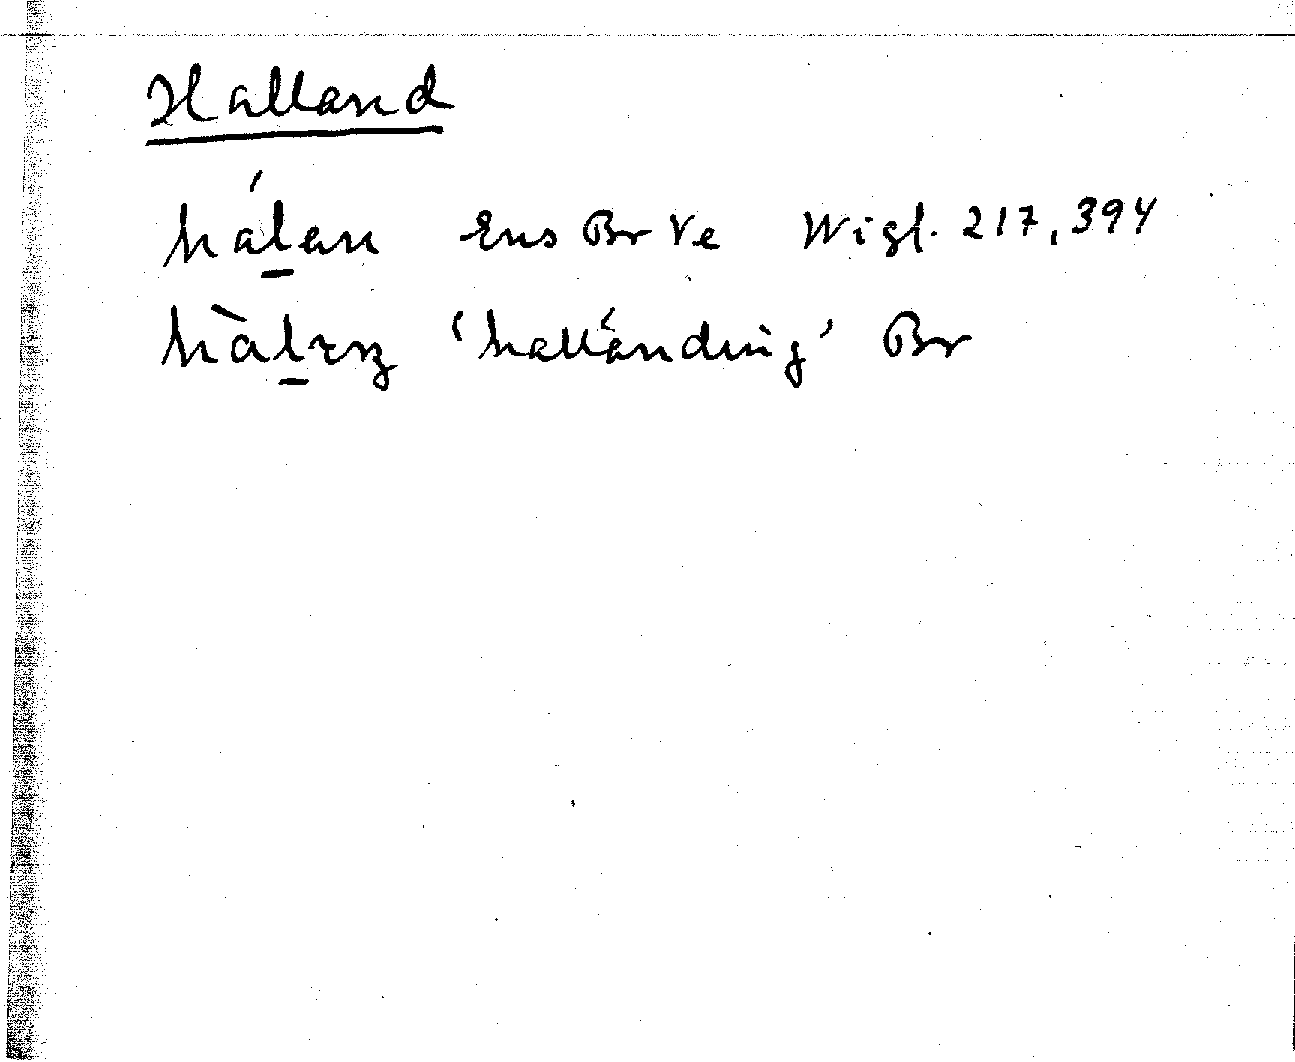 Halland
hál̲an Ens Br Ve Wigf. 217, 394
hàl̲ɪŋ 'halländing' Br